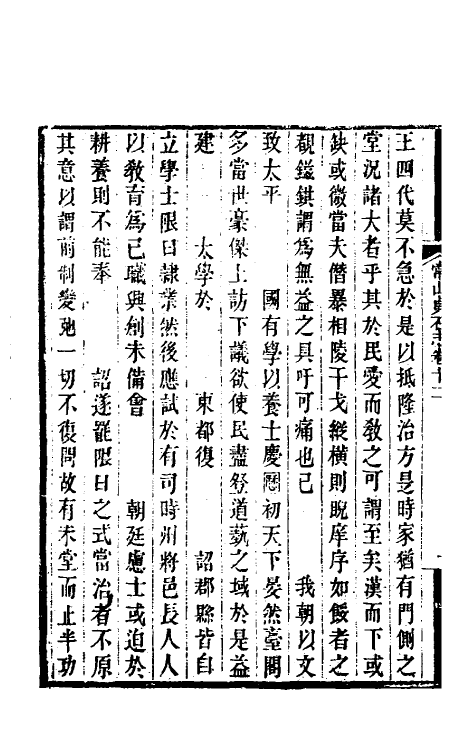 王四代莫不急於是以抵隆治方是時家猶有門側之
堂況諸大者乎其於民愛而敎之可謂至矣漢而下或
缺或微當夫僭暴相陵干戈縱橫則睨庠序如餒者之
覩鎡錤謂爲無益之具吁可痛也已　我朝以文
致太平　國有學以養士慶曆初天下晏然臺閣
多當世豪傑上訪下議欲使民盡登道藝之域於是益
建　太學於　東都復　詔郡縣皆自
立學士限日隸業然後應試於有司時州將邑長人人
以敎育爲己職興創未備會　朝廷慮士或迫於
耕養則不能奉　詔遂罷限日之式當治者不原
其意以謂前制變\u3000一切不復問故有未堂而止半功
常山貞石志卷十二